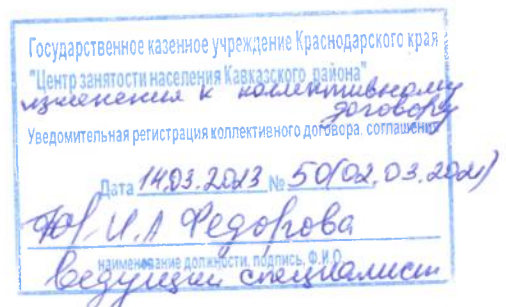 Государственное казенное учреждение Краснодарского края
"Центр занятости населения Кавказского района"
изменения к коллективному
договору
Уведомительная регистрация коллективного договора, соглашения
Дата 14.03.2023 № 50(02.03.2021)
И.А Федорова
наименование должности, подпись, Ф.И.О.
ведущий специалист